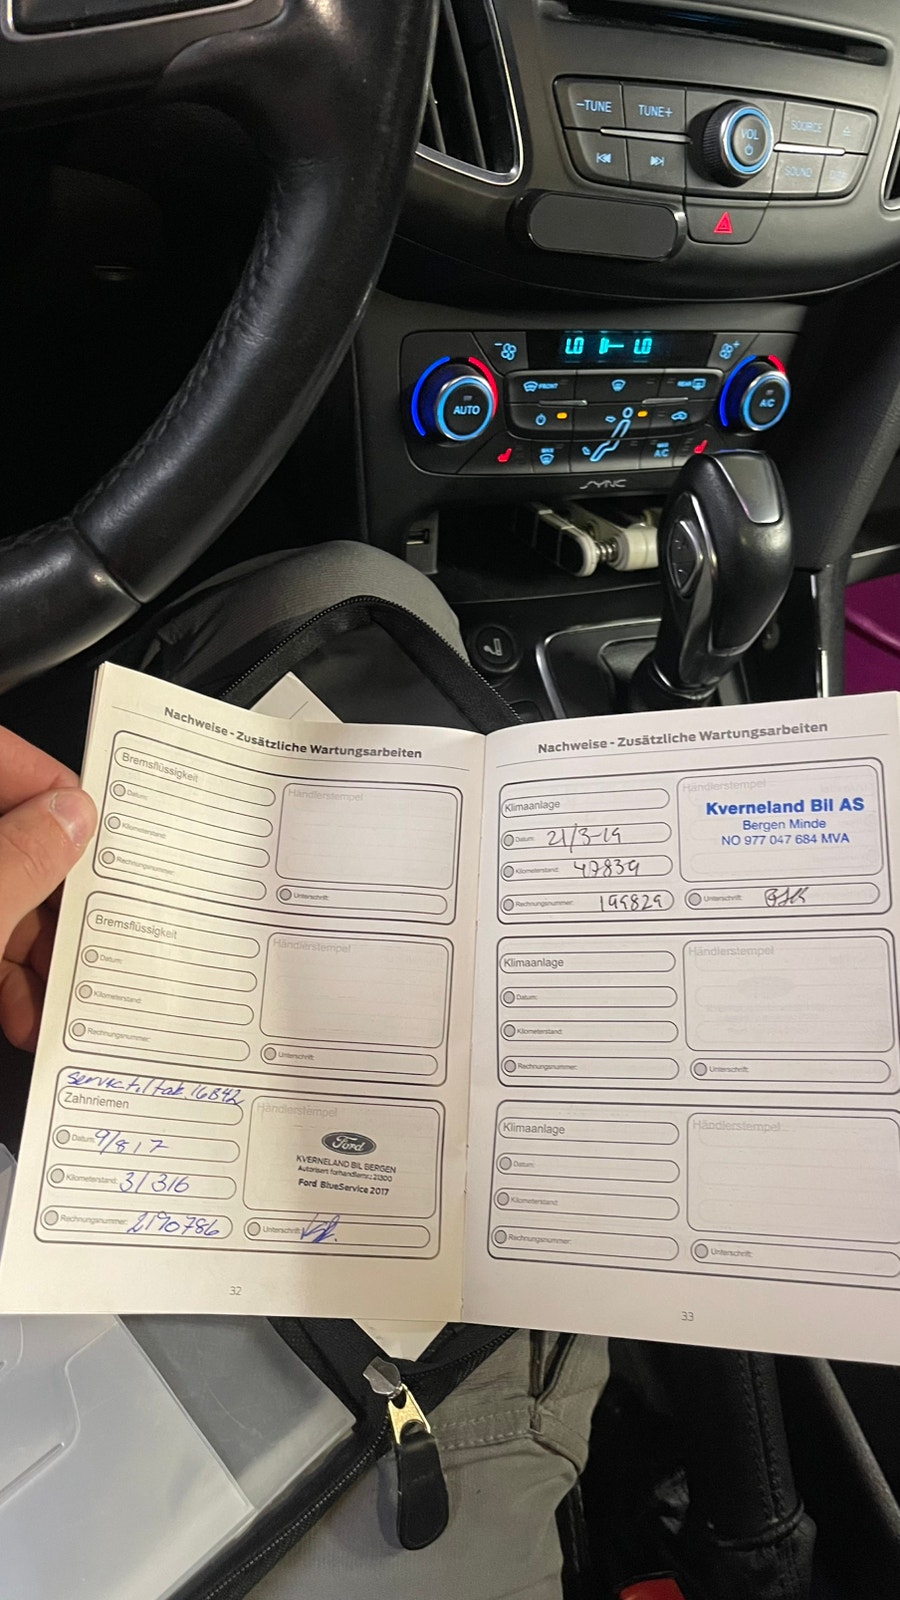 −TUNE
TUNE+
VOL
SOURCE
SOUND
LO
LO
FRONT
REAR
AUTO
A/C
MAX
MAX
A/C
SYNC
Nachweise - Zusätzliche Wartungsarbeiten
Bremsflüssigkeit
Händlerstempel
Datum:
Kilometerstand:
Rechnungsnummer:
Unterschrift:
Bremsflüssigkeit
Händlerstempel
Datum:
Kilometerstand:
Rechnungsnummer:
Unterschrift:
Zahnriemen
Händlerstempel
Datum: 9/8 17
Kilometerstand: 31316
Rechnungsnummer: 2190786
Ford
KVERNELAND BIL BERGEN
Autorisert forhandlernr.: 21300
Ford BlueService 2017
Unterschrift:
32
Nachweise - Zusätzliche Wartungsarbeiten
Klimaanlage
Händlerstempel
Datum: 21/3-19
Kilometerstand: 47839
Rechnungsnummer: 199829
Kverneland Bil AS
Bergen Minde
NO 977 047 684 MVA
Unterschrift:
Klimaanlage
Händlerstempel
Datum:
Kilometerstand:
Rechnungsnummer:
Unterschrift:
Klimaanlage
Händlerstempel
Datum:
Kilometerstand:
Rechnungsnummer:
Unterschrift:
33